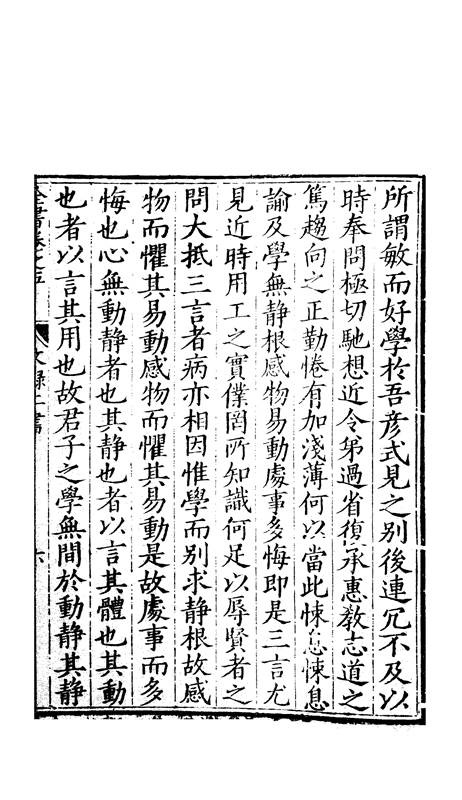 所謂敏而好學於吾彦式見之别後連冗不及以
時奉問極切馳想近令弟過省復承惠教志道之
篤趨向之正勤惓有加淺薄何以當此悚息悚息
諭及學無静根感物易動處事多悔即是三言尤
見近時用工之實僕罔所知識何足以辱賢者之
問大抵三言者病亦相因惟學而别求静根故感
物而懼其易動感物而懼其易動是故處事而多
悔也心無動静者也其静也者以言其體也其動
也者以言其用也故君子之學無間於動静其静
全書卷之五 文録二書 六